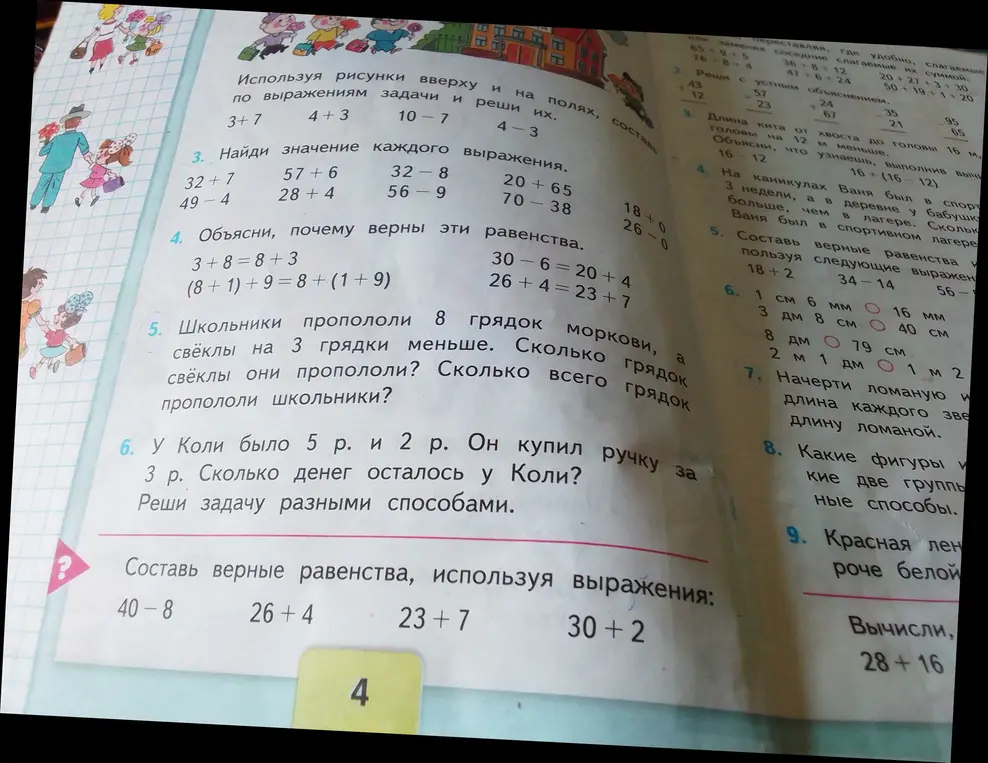 Используя рисунки вверху и на полях, составь
по выражениям задачи и реши их.
3+ 7 4 + 3 10 − 7 4 − 3
3. Найди значение каждого выражения.
32 + 7 57 + 6 32 − 8 20 + 65 18 + 0
49 − 4 28 + 4 56 − 9 70 − 38 26 − 0
4. Объясни, почему верны эти равенства.
3 + 8 = 8 + 3 30 − 6 = 20 + 4
(8 + 1) + 9 = 8 + (1 + 9) 26 + 4 = 23 + 7
5. Школьники пропололи 8 грядок моркови, а
свёклы на 3 грядки меньше. Сколько грядок
свёклы они пропололи? Сколько всего грядок
пропололи школьники?
6. У Коли было 5 р. и 2 р. Он купил ручку за
3 р. Сколько денег осталось у Коли?
Реши задачу разными способами.
?
Составь верные равенства, используя выражения:
40 − 8 26 + 4 23 + 7 30 + 2
4
переставляя, где удобно, слагаемые
или заменяя соседние слагаемые их суммой.
65 + 9 + 5 36 + 8 + 12 20 + 27 + 3 + 30
76 + 8 + 4 47 + 6 + 24 50 + 19 + 1 + 20
2. Реши с устным объяснением.
43 57 24 35 95
12 23 67 21 65
3. Длина кита от хвоста до головы 16 м,
головы на 12 м меньше.
Объясни, что узнаешь, выполнив
16 − 12 16 + (16 − 12)
4. На каникулах Ваня был в
3 недели, а в деревне у
больше, чем в лагере.
Ваня был в спортивном лагере
5. Составь верные равенства
пользуя следующие
18 + 2 34 − 14 56 −
6. 1 см 6 мм 16 мм
3 дм 8 см 40 см
8 дм 79 см
2 м 1 дм 1 м 2
7. Начерти ломаную
длина каждого зве
длину ломаной.
8. Какие фигуры
кие две группы
ные способы.
9. Красная лен
роче белой
Вычисли,
28 + 16